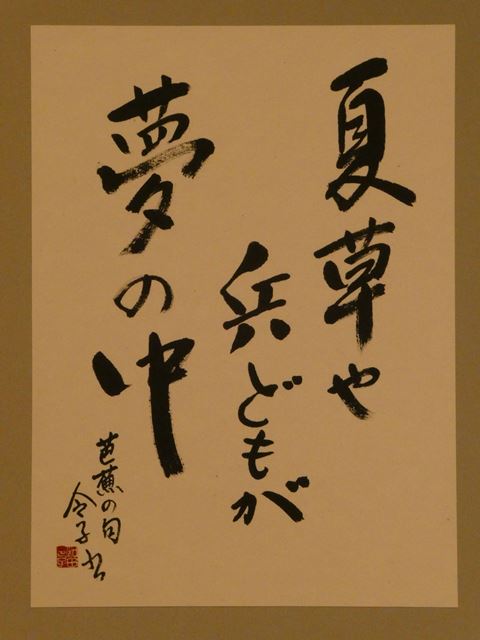 夏草や
兵どもが
夢の中
芭蕉の句
令子書